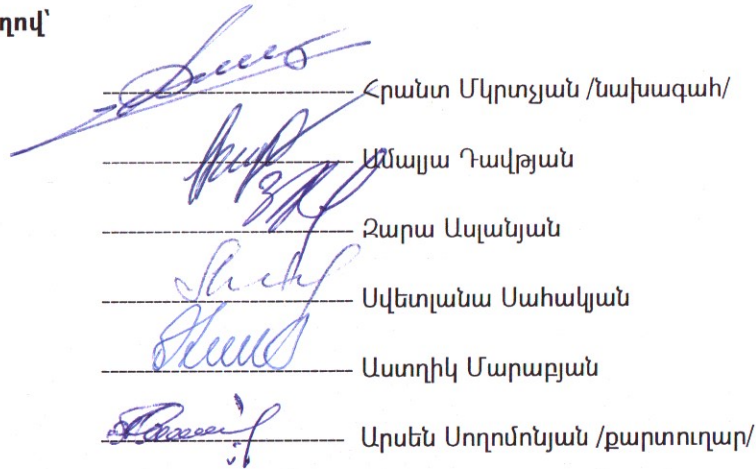 ղով՝
Հրանտ Մկրտչյան /նախագահ/
Ամալյա Դավթյան
Զարա Ասլանյան
Սվետլանա Սահակյան
Աստղիկ Մարաբյան
Արսեն Սողոմոնյան /քարտուղար/